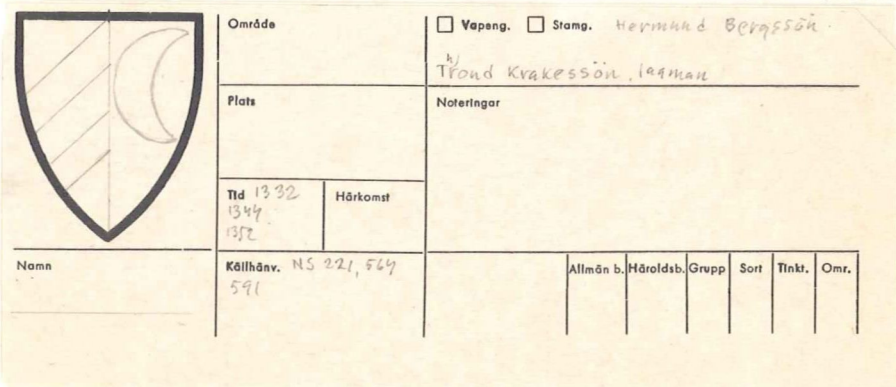 Område
Vapeng. Stamg. Hermund Bergssön.
Trond Krakessön, lagman
Plats
Noteringar
Tid 1332
1344
1352
Härkomst
Namn
Källhänv. NS 221, 564
591
Allmän b. Häroldsb. Grupp Sort Tinkt. Omr.